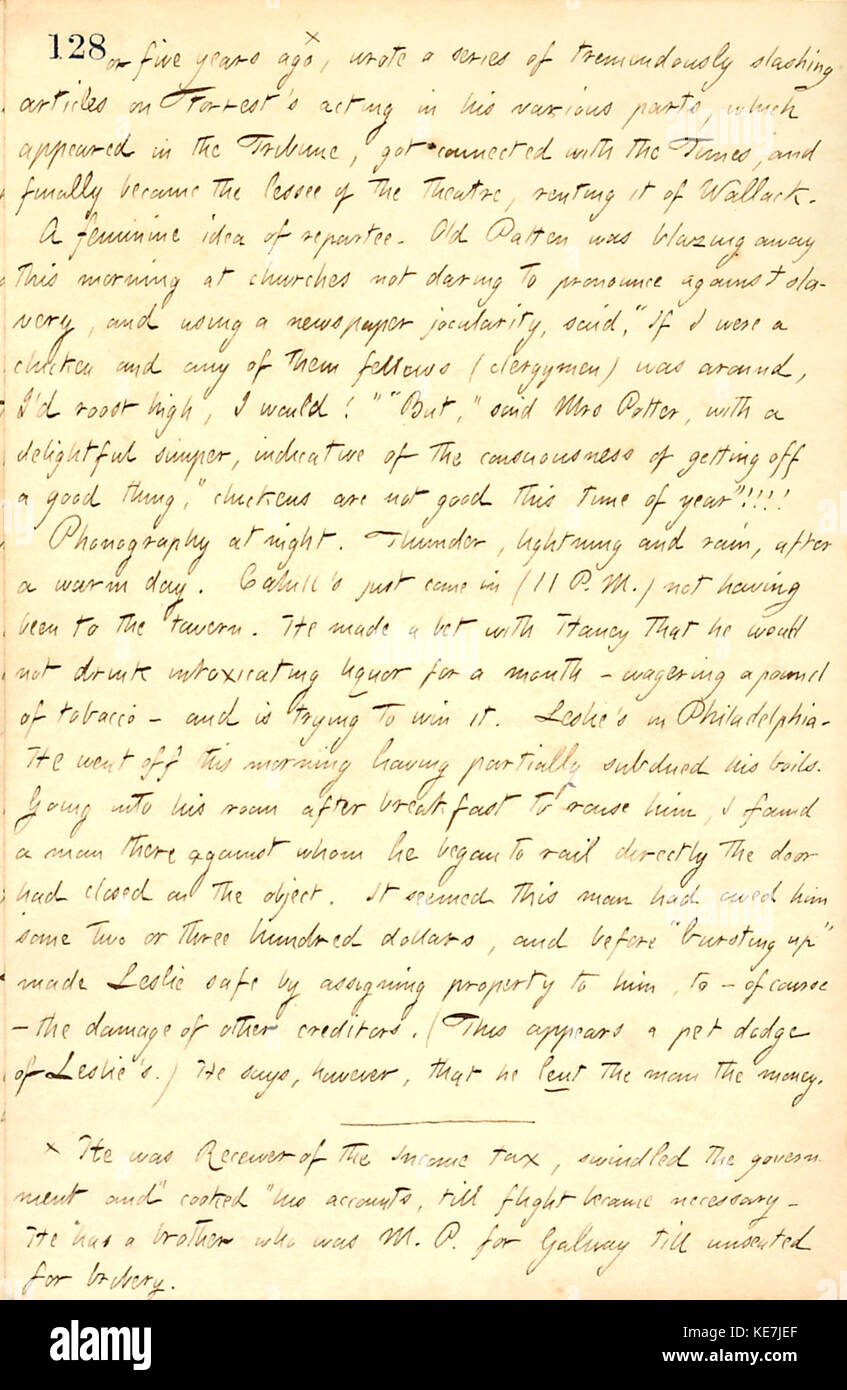 128
or five years ago ×, wrote a series of tremendously slashing
articles on Forrest's acting in his various parts, which
appeared in the Tribune, got connected with the Times, and
finally became the lessee of the theatre, renting it of Wallack.
A feminine idea of repartee. Old Patten was blazing away
this morning at churches not daring to pronounce against sla-
very, and using a newspaper jocularity, said, "If I were a
chicken and any of them fellows (clergymen) was around,
I'd roost high, I would!" "But," said Mrs Potter, with a
delightful simper, indicative of the consciousness of getting off
a good thing, "chickens are not good this time of year"!!!!
Phonography at night. Thunder, lightning and rain, after
a warm day. Cahill's just come in (11 P.M.) not having
been to the tavern. He made a bet with Haney that he would
not drink intoxicating liquor for a month - wagering a pound
of tobacco - and is trying to win it. Leslie's in Philadelphia.
He went off this morning having partially subdued his boils.
Going into his room after breakfast to rouse him, I found
a man there against whom he began to rail directly the door
had closed on the object. It seemed this man had owed him
some two or three hundred dollars, and before "bursting up"
made Leslie safe by assigning property to him, to - of course
- the damage of other creditors. (This appears a pet dodge
of Leslie's.) He says, however, that he lent the man the money.
× He was Receiver of the Income tax, swindled the govern-
ment and "cooked" his accounts, till flight became necessary.
He has a brother who was M. P. for Galway till unseated
for bribery.
alamy
Image ID: KE7JEF
www.alamy.com